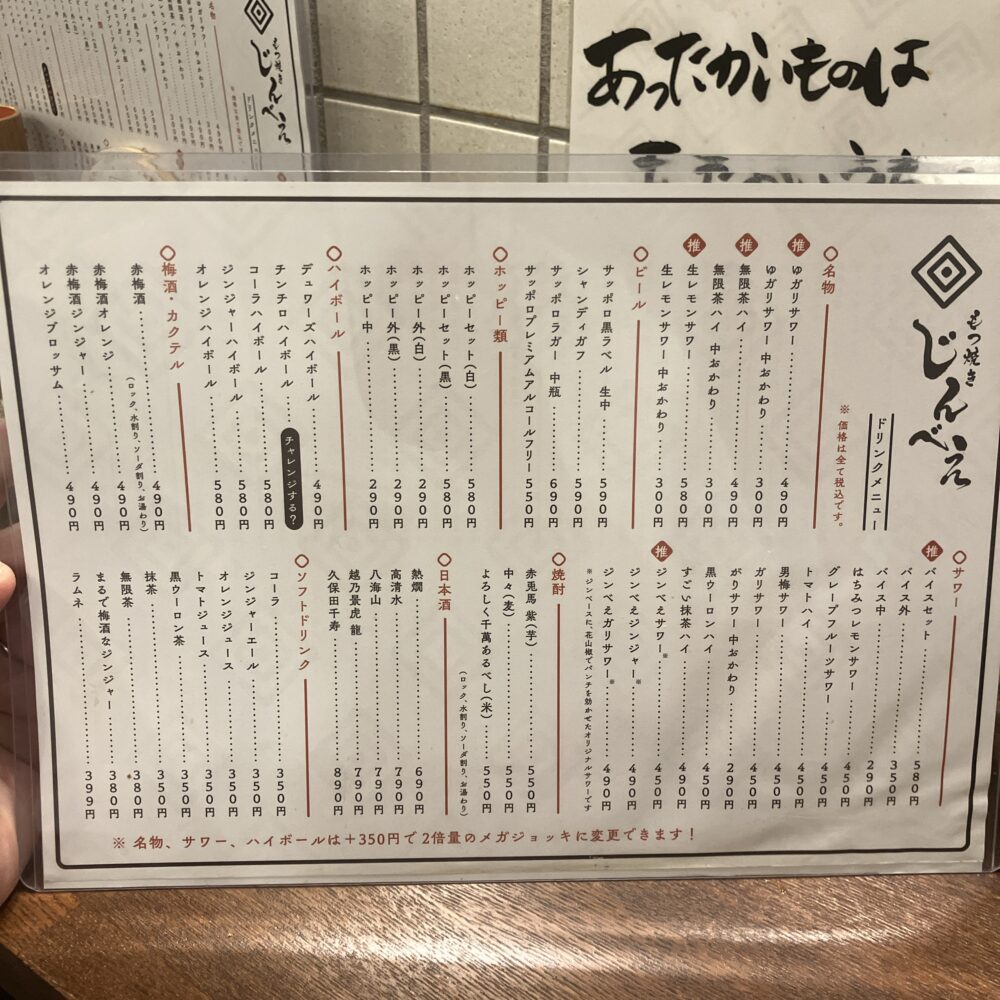 あったかいものは
もつ焼き
じんべえ
ドリンクメニュー
※ 価格は全て税込です。
名物
推 ゆガリサワー 490円
ゆガリサワー 中おかわり 300円
推 無限茶ハイ 490円
無限茶ハイ 中おかわり 300円
推 生レモンサワー 580円
生レモンサワー 中おかわり 300円
ビール
サッポロ黒ラベル 生中 590円
シャンディガフ 590円
サッポロラガー 中瓶 690円
サッポロプレミアムアルコールフリー 550円
ホッピー類
ホッピーセット(白) 580円
ホッピーセット(黒) 580円
ホッピー外(白) 290円
ホッピー外(黒) 290円
ホッピー中 290円
ハイボール
デュワーズハイボール 490円
チンチロハイボール チャレンジする?
コーラハイボール 580円
ジンジャーハイボール 580円
オレンジハイボール 580円
梅酒・カクテル
赤梅酒 490円
(ロック、水割り、ソーダ割り、お湯わり)
赤梅酒オレンジ 490円
赤梅酒ジンジャー 490円
オレンジブロッサム 490円
サワー
推 バイスセット 580円
バイス外 350円
バイス中 290円
はちみつレモンサワー 450円
グレープフルーツサワー 450円
トマトハイ 450円
男梅サワー 450円
ガリサワー 450円
がりサワー 中おかわり 290円
黒ウーロンハイ 450円
すごい抹茶ハイ 490円
推 ジンべえサワー※ 450円
ジンべえジンジャー※ 490円
ジンべえガリサワー※ 490円
※ジンベースに、花山椒でパンチを効かせたオリジナルサワーです
焼酎
赤兎馬 紫(芋) 550円
中々(麦) 550円
よろしく千萬あるべし(米) 550円
(ロック、水割り、ソーダ割り、お湯わり)
日本酒
熱燗 690円
高清水 790円
八海山 790円
越乃景虎 龍 790円
久保田千寿 890円
ソフトドリンク
コーラ 350円
ジンジャーエール 350円
オレンジジュース 350円
トマトジュース 350円
黒ウーロン茶 350円
抹茶 350円
無限茶 380円
まるで梅酒なジンジャー 380円
ラムネ 399円
※ 名物、サワー、ハイボールは+350円で2倍量のメガジョッキに変更できます！